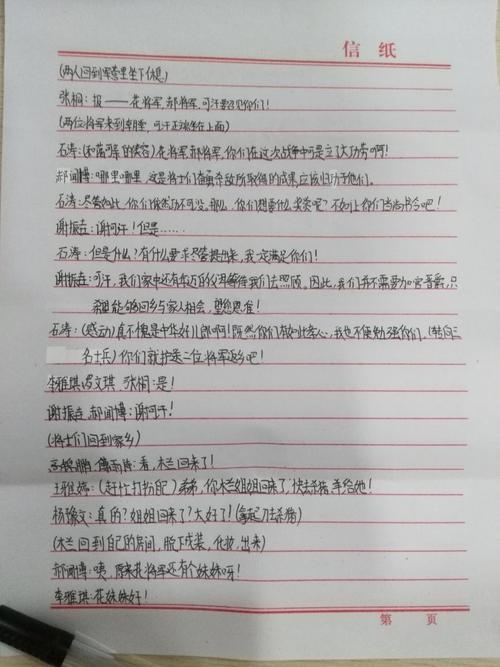 信 纸
(两人回到军营里坐下休息)
张桐：报——花将军，郝将军，可汗要召见你们！
(两位将军来到朝堂，可汗正端坐在上面)
石涛：(和蔼可亲的笑容)花将军，郝将军，你们在这次战争中可是立了大功劳啊！
郝闻博：哪里哪里，这是将士们奋勇杀敌所取得的成果应该归功于他们。
石涛：尽管如此，你们依然功不可没。那么，你们想要什么奖赏呢？不如让你们当尚书令吧！
谢振垚：谢可汗！但是……
石涛：但是什么？有什么要求尽管提出来，我一定满足你们！
谢振垚：可汗，我们家中还有年迈的父母等待我们去照顾。因此，我们并不需要加官晋爵，只
希望能够回乡与家人相会，望您恩准！
石涛：(感动)真不愧是中华好儿郎啊！既然你们有如此孝心，我也不便勉强你们。(转向三
名士兵)你们就护送二位将军返乡吧！
李雅琪，文琪，张桐：是！
谢振垚，郝闻博：谢可汗！
(将士们回到家乡)
鹏，雨：看，木兰回来了！
王雅婷：(赶忙打扮)弟弟，你木兰姐姐回来了，快去杀猪宰羊给她！
杨豫文：真的？姐姐回来了？太好了！(拿起刀去杀猪)
(木兰回到自己的房间，脱下戎装，化妆，出来)
郝闻博：咦，原来花将军还有个妹妹呀！
李雅琪：花妹妹好！
第 页